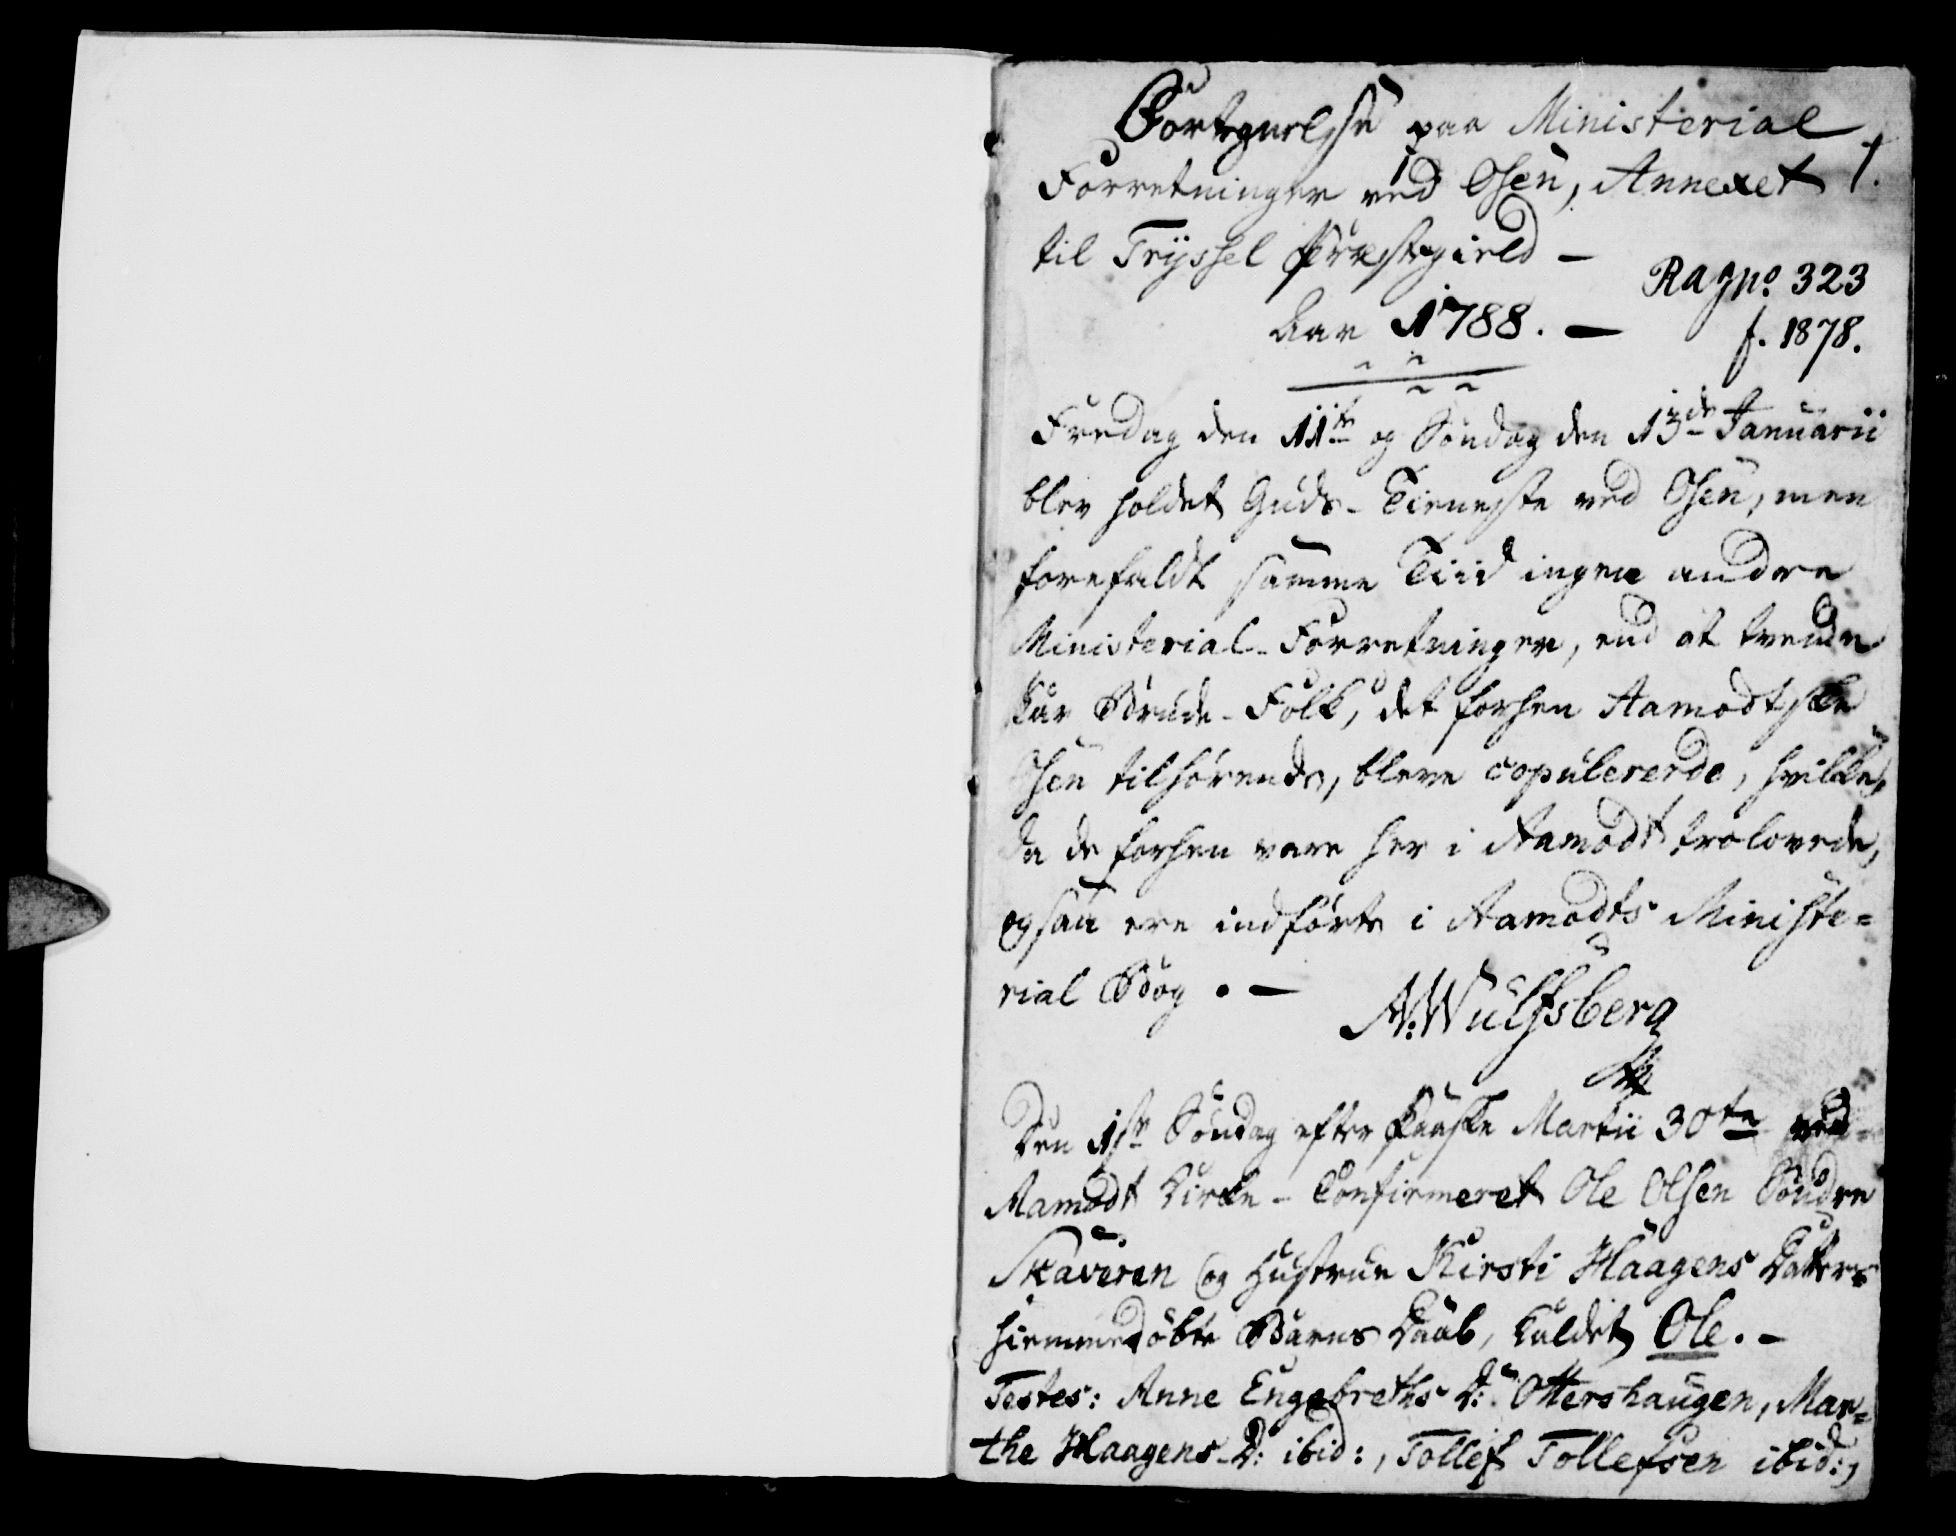 Fortegnelse paa Ministerial
Forretninger ved Osen, Annexet 1.
til Tryssel Præstegield —
Ragno. 323
Aar 1788. —
f. 1878.
Fredag den 11te og Søndag den 13de Januarii
blev holdet Guds-Tieneste ved Osen, men
forefaldt samme Tiid ingen andre
Ministerial-Forretninger, end at tvende
Par Brude-Folk, det forhen Aamodtske
Osen tilhørende, bleve copulerede, hvilke,
da de forhen vare her i Aamodt trolovede,
ogsaa ere indførte i Aamodts Ministe=
rial Bog. —
A: Wulfsberg
Den 1ste Søndag efter Paaske Martii 30te ved
Aamodt Kirke - Confirmeret Ole Olsen Søndre
Skaveren og Hustrue Kirsti Haagens Datters
hiemmedøbte Barns Daab, kaldet Ole. —
Testes: Anne Engebreths D: Ottershaugen, Mar=
the Haagens-D: ibid:, Tollef Tollefsen ibid:,